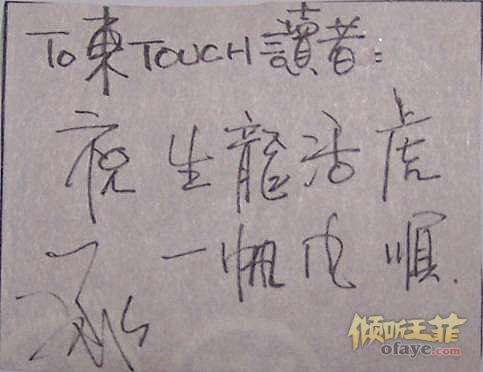 To 東TOUCH讀者:
祝 生龍活虎
一帆風順.
倾听王菲
ofaye.com